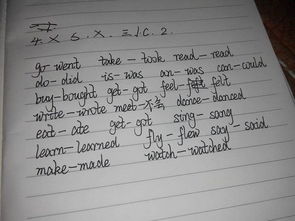 4. X 5. X. 三 1C. 2.
go-went take-took read-read
do-did is-was an-was can-could
buy-bought get-got feel-felt
write-wrote meet-不会 dance-danced
eat-ate get-got sing-sang
learn-learned fly-flew say-said
make-made watch-watched